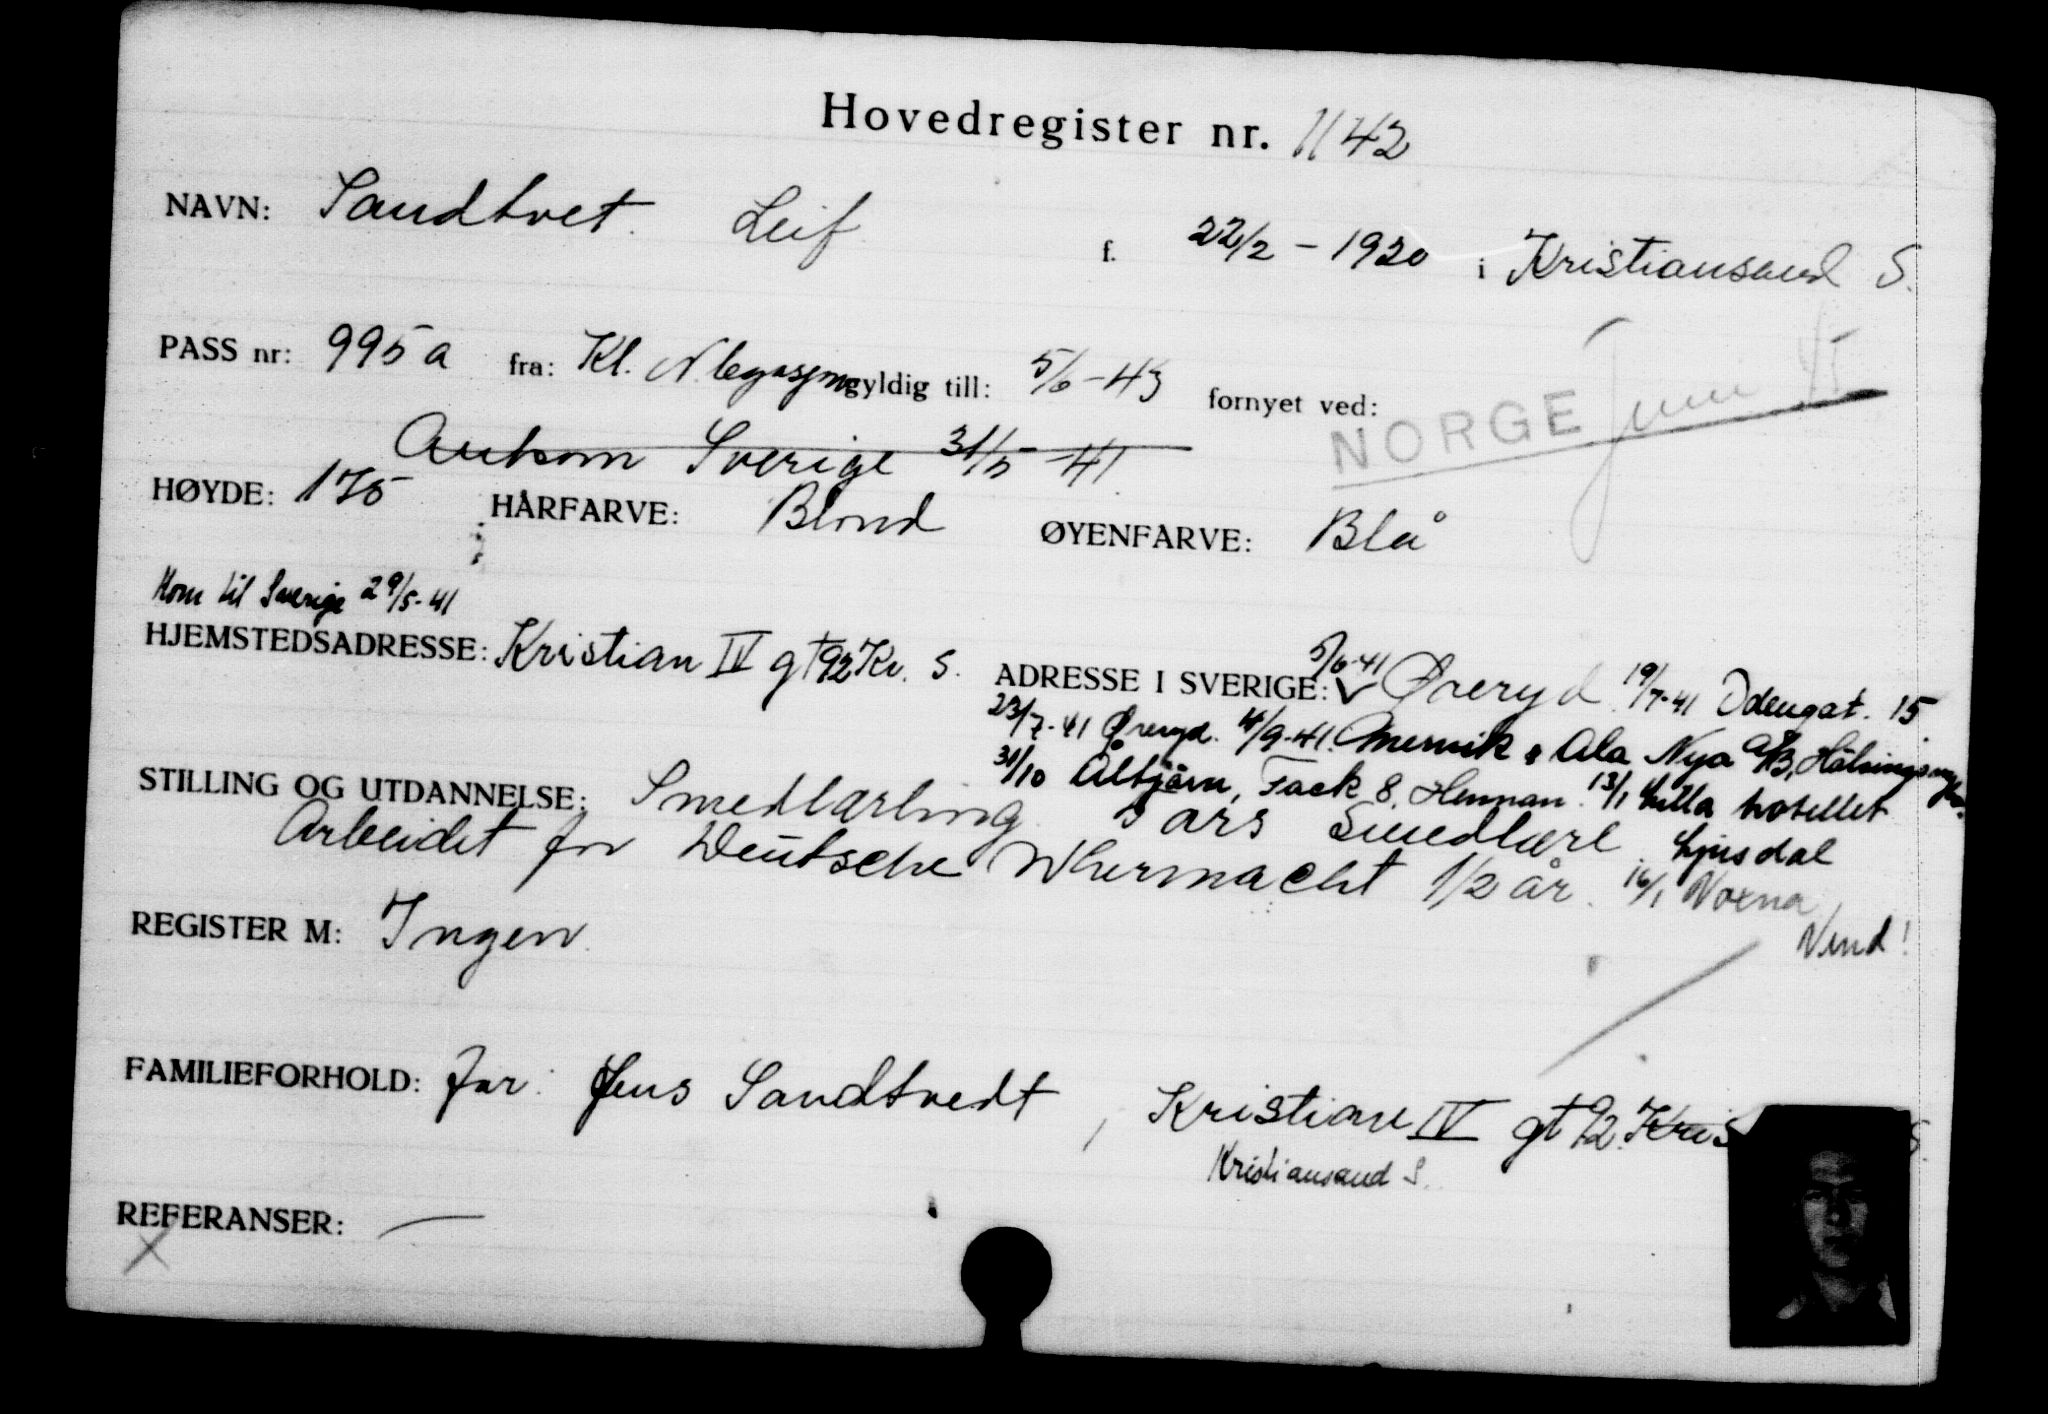 Hovedregister nr. 1142
NAVN: Sandtvet. Leif f. 22/2 - 1920 i Kristiansand S.
PASS nr: 995a fra: Kl. N. legasjon gyldig till: 5/6 - 43 fornyet ved:
NORGE Juni 45
Ankom Sverige 31/5 - 41
HØYDE: 175 HÅRFARVE: Blond ØYENFARVE: Blå
Kom til Sverige 29/5-41
HJEMSTEDSADRESSE: Kristian IV gt 92 Kr. S. ADRESSE I SVERIGE: 5/6-41 Øreryd 19/7-41 Odengat. 15
23/7-41 Øreryd. 4/9-41. Ala Nya A/B,
31/10 Åltjärn, Fack 8, Hennan. 13/1 Lilla hotellet
Ljusdal
STILLING OG UTDANNELSE: Smedlærling 3 års Smedlære
Arbeidet for Deutsche Whermacht 1/2 år. 16/1 Voxna
Vend!
REGISTER M: Ingen.
FAMILIEFORHOLD: far: Jens Sandtvedt, Kristian IV gt 92. Kris S.
Kristiansand S.
REFERANSER: —
X